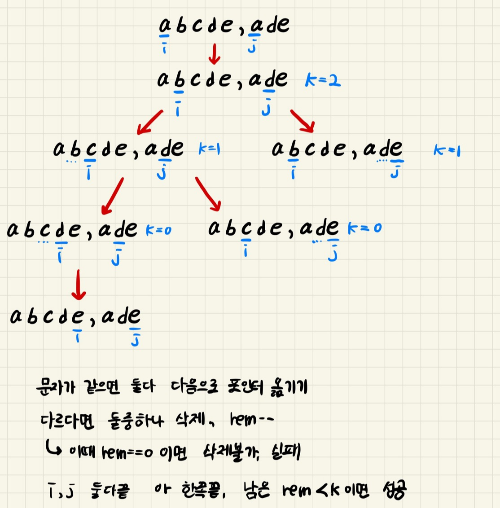 abcde, ade
i j
abcde, ade k=2
i j
abcde, ade k=1 abcde, ade k=1
i j i j
abcde, ade k=0 abcde, ade k=0
i j i j
abcde, ade
i j
문자가 같으면 둘다 다음으로 포인터 옮기기
다르다면 둘중하나 삭제, rem--
이때 rem==0 이면 삭제불가, 실패
i, j 둘다끝 or 한쪽끝, 남은 rem < k 이면 성공